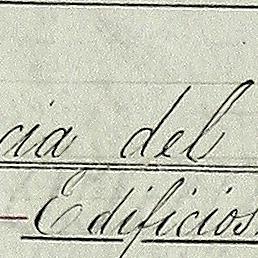 cia del
Edificios.